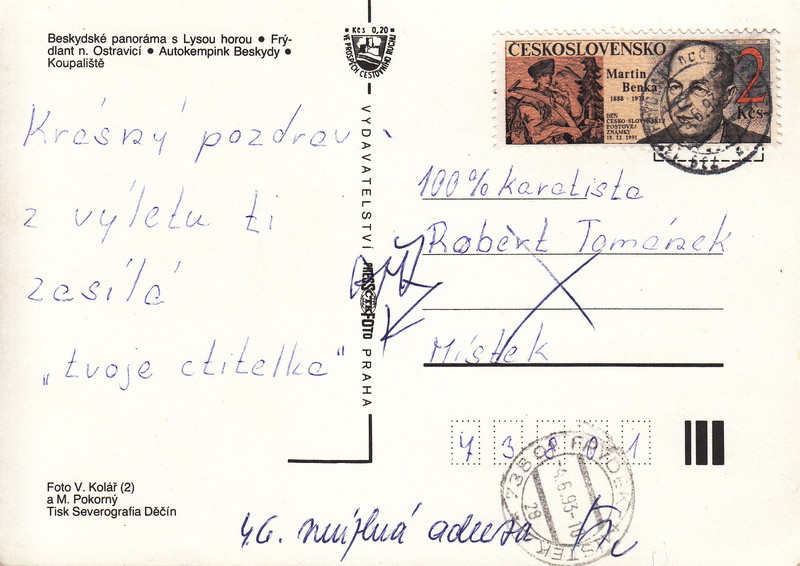 Beskydské panoráma s Lysou horou ● Frý-
dlant n. Ostravicí ● Autokempink Beskydy ●
Koupaliště
Kčs 0,20
VE PROSPĚCH CESTOVNÍHO RUCHU
ČESKOSLOVENSKO
Martin
Benka
1888 - 1971
DEN
ČESKO-SLOVENSKEJ
POŠTOVEJ
ZNÁMKY
18. 12. 1991
2
Kčs
Krásný pozdrav
z výletu ti
zasílá
„tvoje ctitelka"
VYDAVATELSTVÍ PRESSFOTO PRAHA
ČTK
100% karatista
Robert Tománek
Místek
738 01
738 01 FRÝDEK-MÍSTEK
-4.6.93-18
28
Foto V. Kolář (2)
a M. Pokorný
Tisk Severografia Děčín
4.6. neúplná adresa